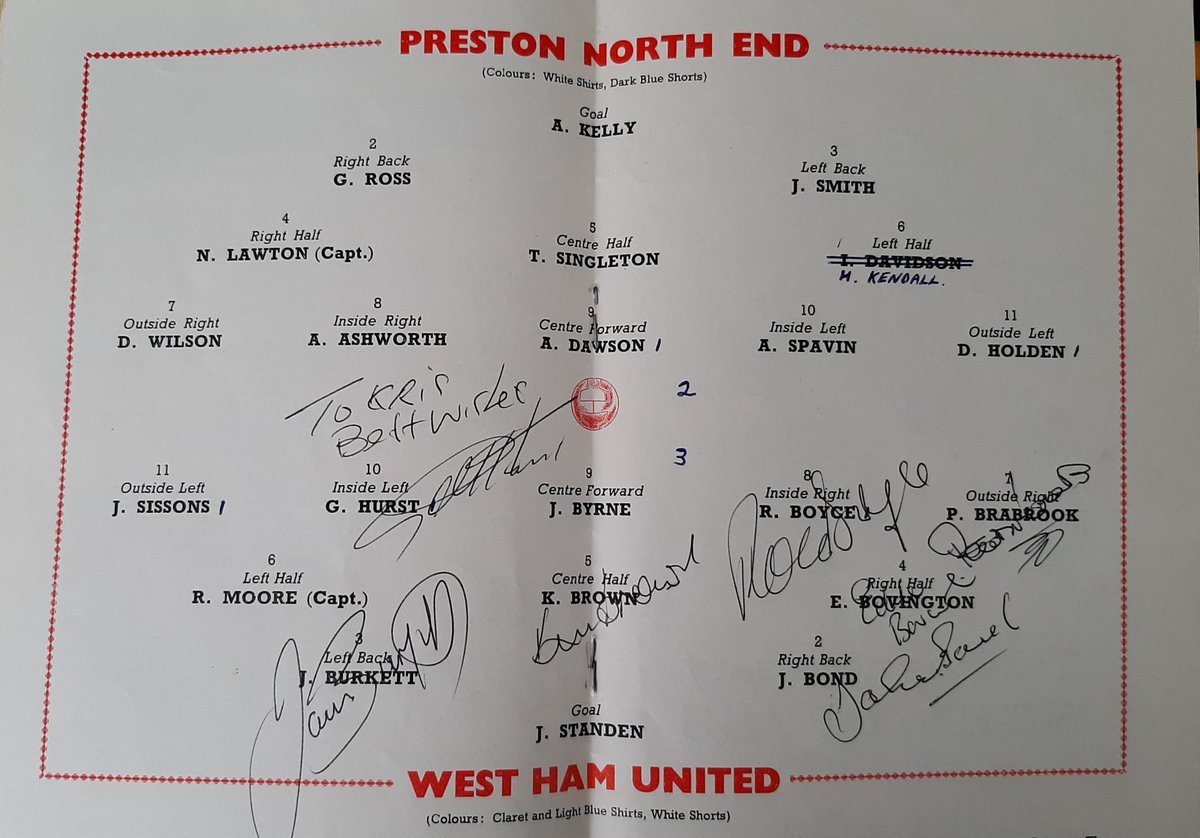 PRESTON NORTH END
(Colours: White Shirts, Dark Blue Shorts)
Goal
A. KELLY
2
Right Back
G. ROSS
3
Left Back
J. SMITH
4
Right Half
N. LAWTON (Capt.)
5
Centre Half
T. SINGLETON
6
Left Half
I. DAVIDSON
H. KENDALL.
7
Outside Right
D. WILSON
8
Inside Right
A. ASHWORTH
9
Centre Forward
A. DAWSON 1
10
Inside Left
A. SPAVIN
11
Outside Left
D. HOLDEN 1
To KRIS
Best Wishes
2
3
11
Outside Left
J. SISSONS 1
10
Inside Left
G. HURST 1
9
Centre Forward
J. BYRNE
8
Inside Right
R. BOYCE 1
7
Outside Right
P. BRABROOK
6
Left Half
R. MOORE (Capt.)
5
Centre Half
K. BROWN
Ken Brown
4
Right Half
E. BOVINGTON
Eddie
3
Left Back
J. BURKETT
2
Right Back
J. BOND
John Bond
Goal
J. STANDEN
WEST HAM UNITED
(Colours: Claret and Light Blue Shirts, White Shorts)